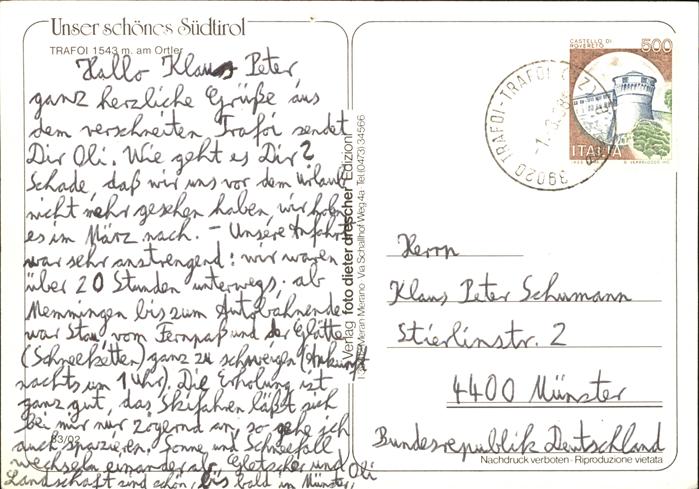 Unser schönes Südtirol
TRAFOI 1543 m. am Ortler
Hallo Klaus Peter,
ganz herzliche Grüße aus
dem verschneiten Trafoi sendet
Dir Oli. Wie geht es Dir?
Schade, daß wir uns vor dem Urlaub
nicht mehr gesehen haben, wir holen
es im März nach. – Unsere Anfahrt
war sehr anstrengend: wir waren
über 20 Stunden unterwegs; ab
Memmingen bis zum Autobahnende
war Stau, vom Fernpaß und der Glätte
(Schneeketten) ganz zu schweigen (Ankunft
nachts um 1 Uhr). Die Erholung ist
ganz gut, das Skifahren läßt sich
bei mir nur zögernd an, so gehe ich
auch spazieren. Sonne und Schneefall
wechseln einander ab, Gletscher und
Landschaft sind schön, bis bald in Münster, Oli
83/92
Verlag foto dieter drescher Edizioni
Meran Merano · Via Schallhof Weg 4a Tel. (0473) 34566
CASTELLO DI
ROVERETO
500
ITALIA
39020 TRAFOI-TRAFOI (BZ)
Herrn
Klaus Peter Schumann
Stierlinstr. 2
4400 Münster
Bundesrepublik Deutschland
Nachdruck verboten - Riproduzione vietata